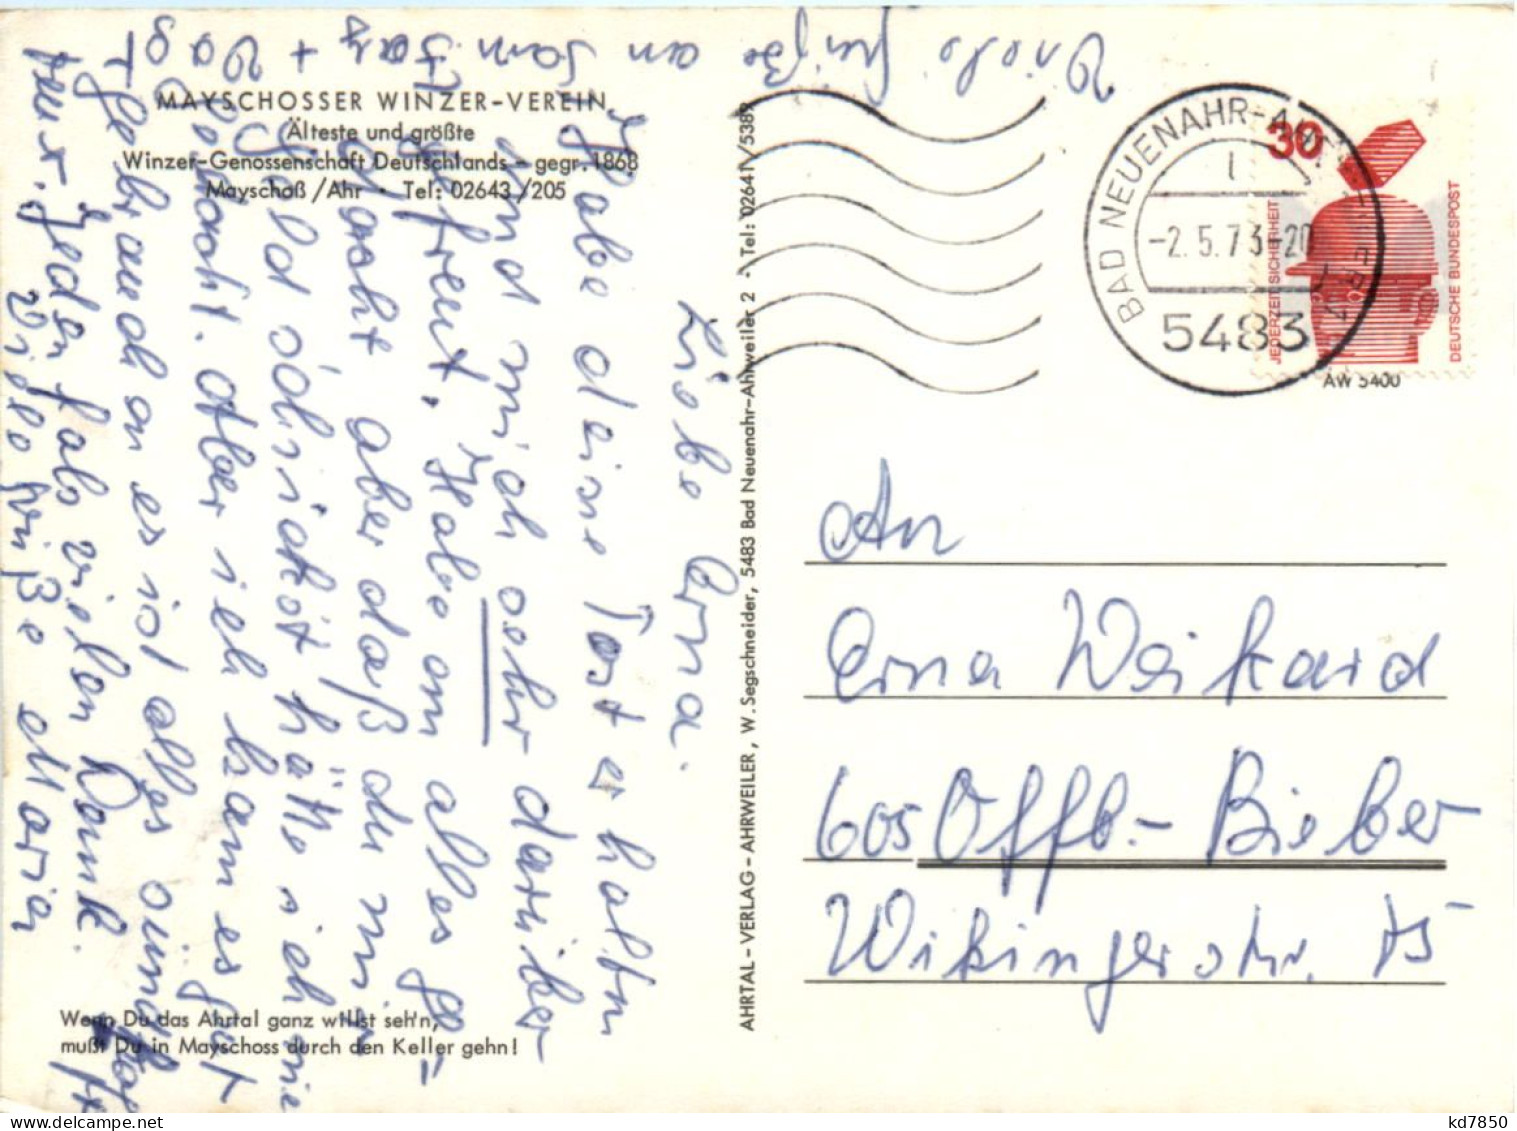 MAYSCHOSSER WINZER-VEREIN
Älteste und größte
Winzer-Genossenschaft Deutschlands - gegr. 1868
Mayschoß/Ahr · Tel: 02643/205
Liebe Erna.
Habe deine Post erhalten
und mich sehr darüber
gefreut. Habe am alles ge"
dacht aber daß du mir
Geld schickst hätte ich nie
gedacht. Aber ich kam es gut
gebrauchen es ist alles
teuer. Jedenfalls vielen Dank.
Viele Grüße Maria
Viele Grüße an
Wenn Du das Ahrtal ganz willst seh'n,
mußt Du in Mayschoss durch den Keller gehn!
AHRTAL-VERLAG-AHRWEILER, W. Segschneider, 5483 Bad Neuenahr-Ahrweiler 2 - Tel: 02641/5389
BAD NEUENAHR-AHRWEILER
1
-2.5.73-20
5483
30
JEDERZEIT SICHERHEIT
DEUTSCHE BUNDESPOST
AW 5400
An
Erna Weikard
605 Offb.-Bieber
Wikingerstr. 15
kd7850